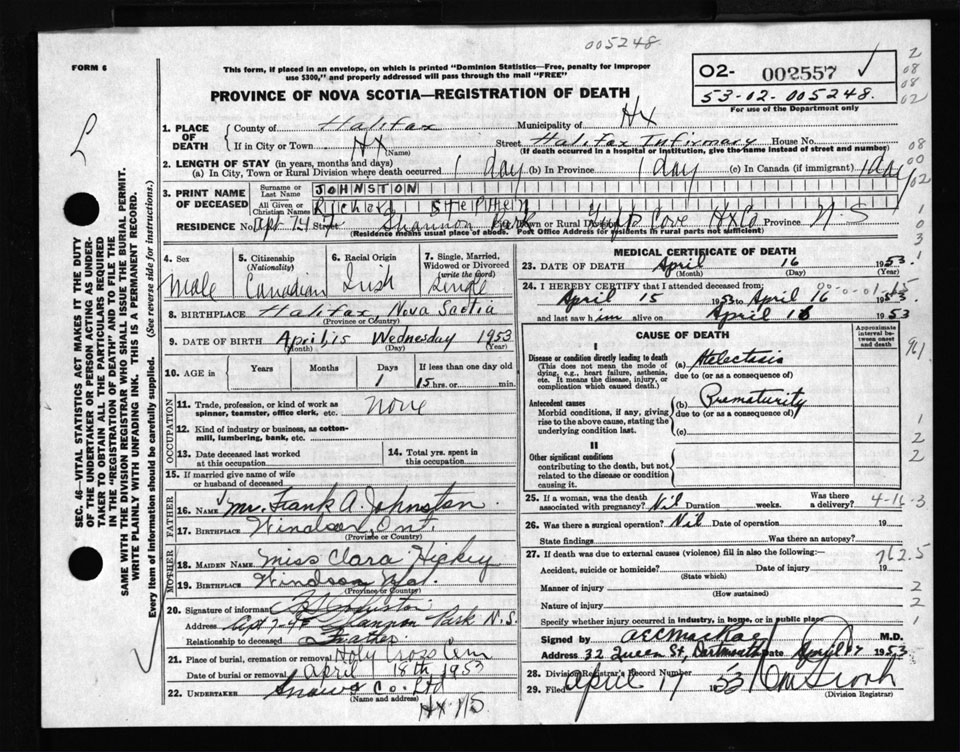 005248
FORM 6
This form, if placed in an envelope, on which is printed "Dominion Statistics—Free, penalty for improper
use $300," and properly addressed will pass through the mail "FREE"
02- 002557 ✓
53-02-005248.
For use of the Department only
2
08
08
02
PROVINCE OF NOVA SCOTIA—REGISTRATION OF DEATH
1. PLACE OF DEATH
County of Halifax Municipality of Hx
If in City or Town HX (Name) Street Halifax Infirmary House No.
(If death occurred in a hospital or institution, give the name instead of street and number)
2. LENGTH OF STAY (in years, months and days)
(a) In City, Town or Rural Division where death occurred 1 day (b) In Province 1 day (c) In Canada (if immigrant) 1 day
08
00
02
3. PRINT NAME OF DECEASED
Surname or Last Name JOHNSTON
All Given or Christian Names Richard Stephen
RESIDENCE No. Apt 7-4 Street Shannon Park Town or Rural Division Tufts Cove Hx Co Province N S
(Residence means usual place of abode. Post Office Address for residents in rural parts not sufficient)
1
0
3
4. Sex
Male
5. Citizenship (Nationality)
Canadian
6. Racial Origin
Irish
7. Single, Married, Widowed or Divorced (write the word)
Single
8. BIRTHPLACE Halifax, Nova Scotia
(Province or Country)
9. DATE OF BIRTH April, 15 Wednesday 1953
(Month) (Day) (Year)
10. AGE in Years Months Days If less than one day old
1 15 hrs. or min.
OCCUPATION
11. Trade, profession, or kind of work as spinner, teamster, office clerk, etc. None
12. Kind of industry or business, as cotton-mill, lumbering, bank, etc.
13. Date deceased last worked at this occupation
14. Total yrs. spent in this occupation
15. If married give name of wife or husband of deceased
FATHER
16. NAME Mr. Frank A. Johnston
17. BIRTHPLACE Windsor, Ont.
(Province or Country)
MOTHER
18. MAIDEN NAME Miss Clara Hickey
19. BIRTHPLACE Windsor
(Province or Country)
20. Signature of informant Johnston
Address Apt 7-4 Shannon Park N.S.
Relationship to deceased Father
21. Place of burial, cremation or removal Holy Cross Cem
Date of burial or removal April 18th 1953
22. UNDERTAKER Snow's Co. Ltd
(Name and address)
HX NS
MEDICAL CERTIFICATE OF DEATH
23. DATE OF DEATH April 16 1953.
(Month) (Day) (Year)
24. I HEREBY CERTIFY that I attended deceased from:
April 15 1953 to April 16 1953.
and last saw him alive on April 16 1953
CAUSE OF DEATH
Approximate interval between onset and death
I
Disease or condition directly leading to death
(This does not mean the mode of dying, e.g., heart failure, asthenia, etc. It means the disease, injury, or complication which caused death.)
(a) Atelectasis
due to (or as a consequence of)
Antecedent causes
Morbid conditions, if any, giving rise to the above cause, stating the underlying condition last.
(b) Prematurity
due to (or as a consequence of)
(c)
1
2
2
II
Other significant conditions
contributing to the death, but not related to the disease or condition causing it.
25. If a woman, was the death associated with pregnancy? Nil Duration weeks. Was there a delivery? 4-16-3
26. Was there a surgical operation? Nil Date of operation 19
State findings Was there an autopsy?
27. If death was due to external causes (violence) fill in also the following:—
762.5
Accident, suicide or homicide? Date of injury 19
(State which)
Manner of injury 2
(How sustained)
Nature of injury 2
Specify whether injury occurred in industry, in home, or in public place 1
Signed by MacRae M.D.
Address 32 Queen St, Dartmouth Date April 17 1953
28. Division Registrar's Record Number
29. Filed April 17 1953
(Division Registrar)
SEC. 46—VITAL STATISTICS ACT MAKES IT THE DUTY
OF THE UNDERTAKER OR PERSON ACTING AS UNDER-
TAKER TO OBTAIN ALL THE PARTICULARS REQUIRED
IN THE "REGISTRATION OF DEATH" AND TO FILE THE
SAME WITH THE DIVISION REGISTRAR WHO SHALL ISSUE THE BURIAL PERMIT.
WRITE PLAINLY WITH UNFADING INK. THIS IS A PERMANENT RECORD.
Every item of information should be carefully supplied. (See reverse side for instructions.)